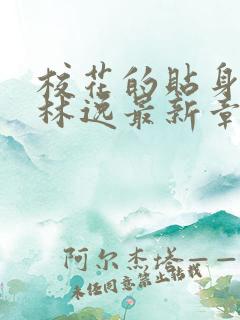 校花的贴身
林逸最新章
阿尔杰塔——
未经同意禁止转载